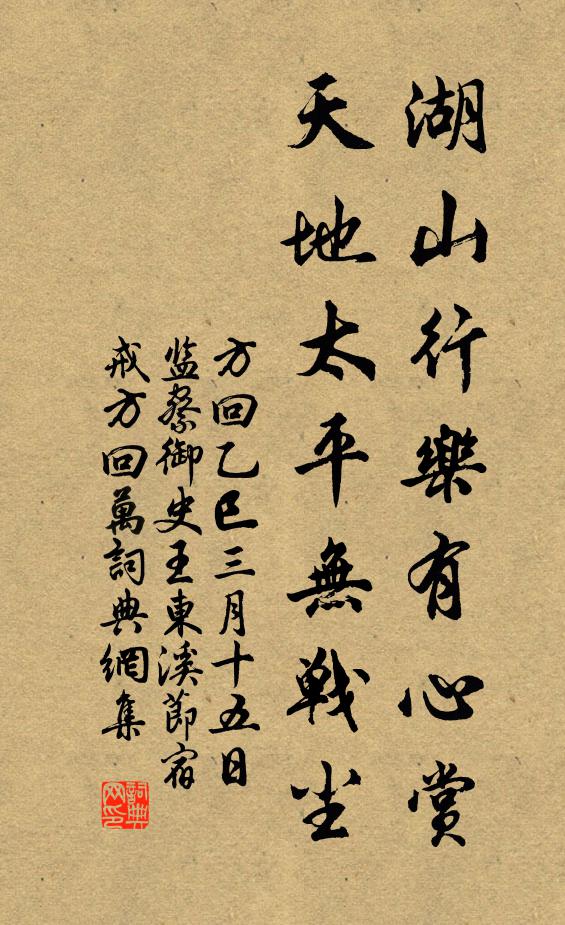 湖山行樂有心賞
天地太平無戰尘
方回乙巳三月十五日
监察御史王東溪節宿
戒方回萬詞典網集
詞典
网印